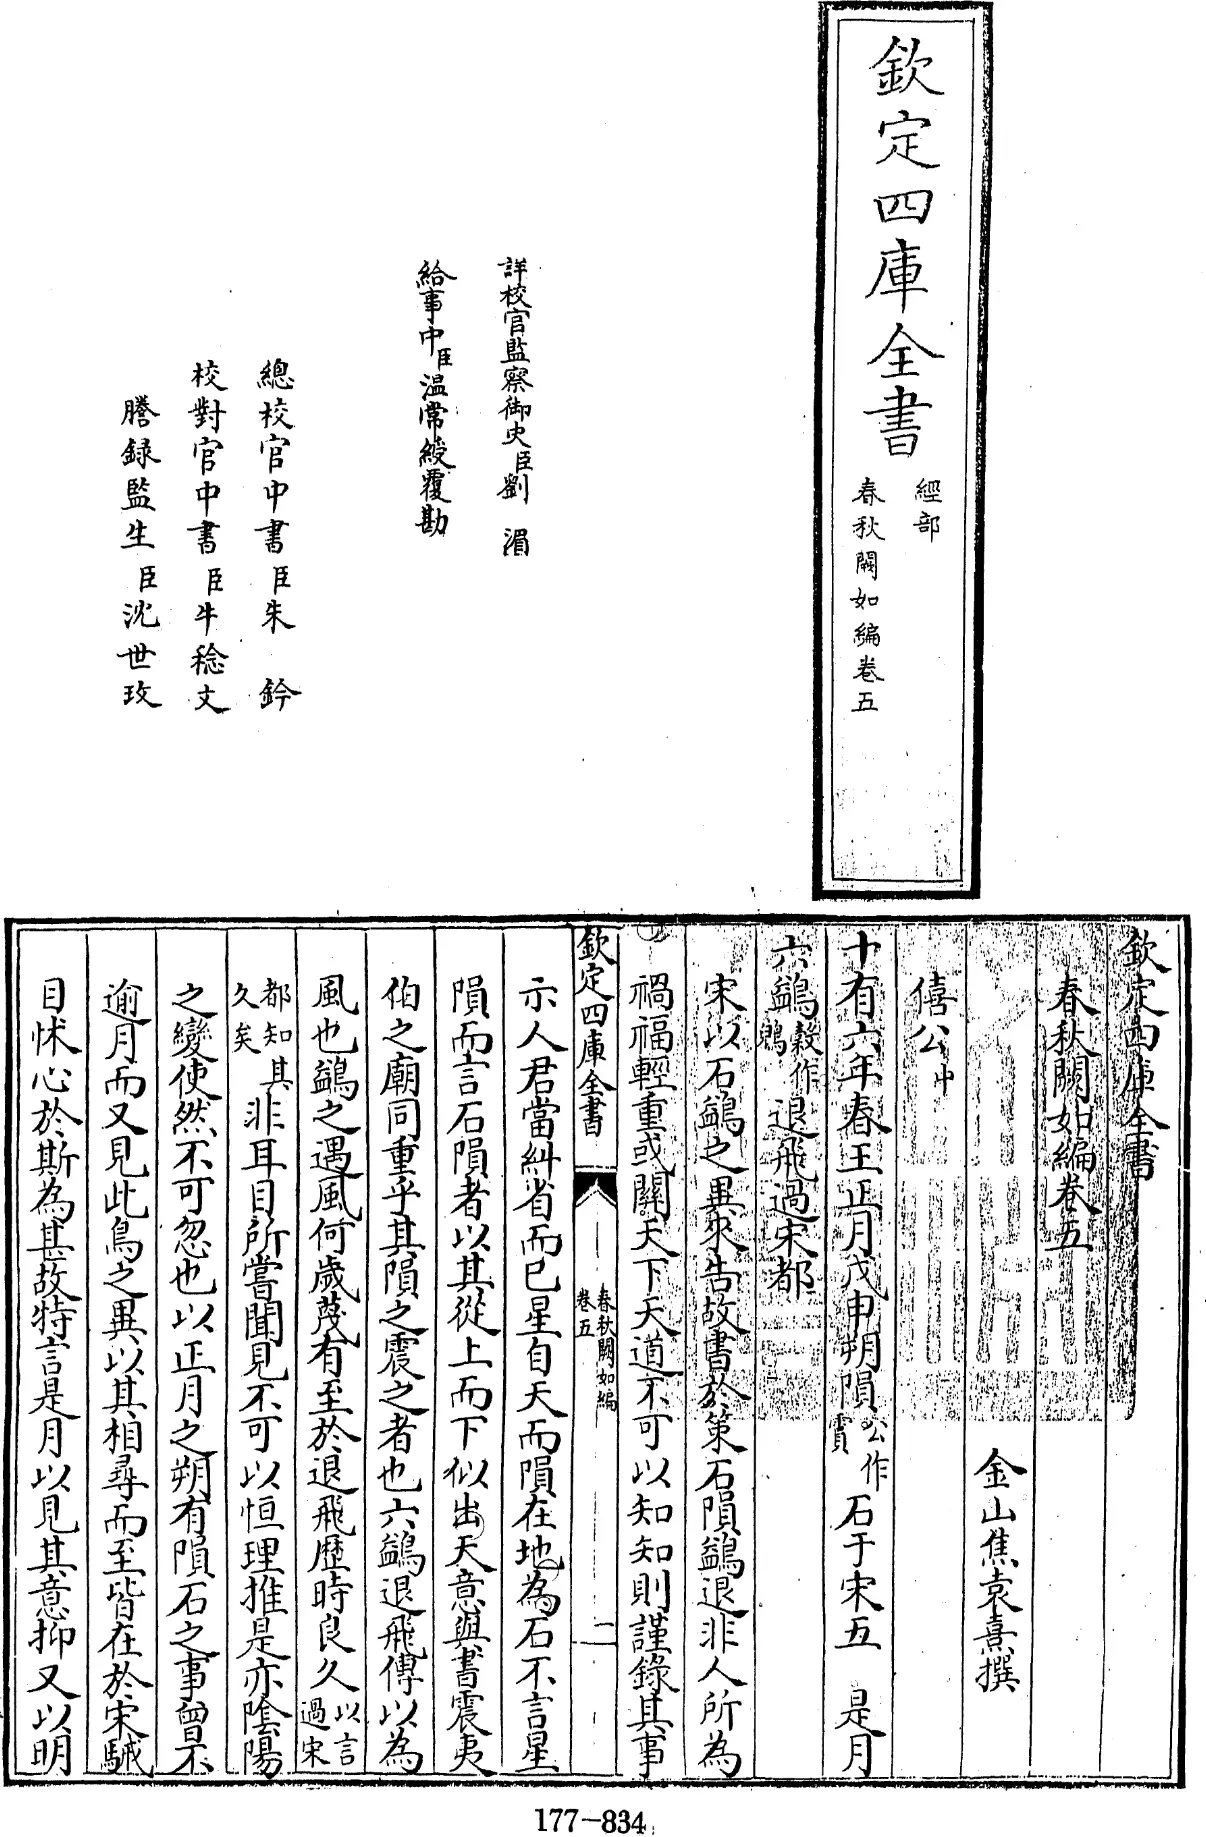 欽定四庫全書
經部
春秋闕如編卷五
詳校官監察御史臣劉湄
給事中臣温常綬覆勘
總校官中書臣朱鈐
校對官中書臣牛稔文
謄録監生臣沈世玫
欽定四庫全書
春秋闕如編卷五
金山焦袁熹撰
僖公中
十有六年春王正月戊申朔隕公作霣石于宋五是月
六鷁穀作鶂退飛過宋都
宋以石鷁之異來告故書於策石隕鷁退非人所為
禍福輕重或關天下天道不可以知知則謹錄其事
欽定四庫全書
春秋闕如編
卷五
一
示人君當糾省而已星自天而隕在地為石不言星
隕而言石隕者以其從上而下似出天意與書震夷
伯之廟同重乎其隕之震之者也六鷁退飛傳以為
風也鷁之遇風何歲蔑有至於退飛歷時良久以言過宋
都知久矣其非耳目所嘗聞見不可以恒理推是亦陰陽
之變使然不可忽也以正月之朔有隕石之事曾不
逾月而又見此鳥之異以其相尋而至皆在於宋駴
目怵心於斯為甚故特言是月以見其意抑又以明
177-834